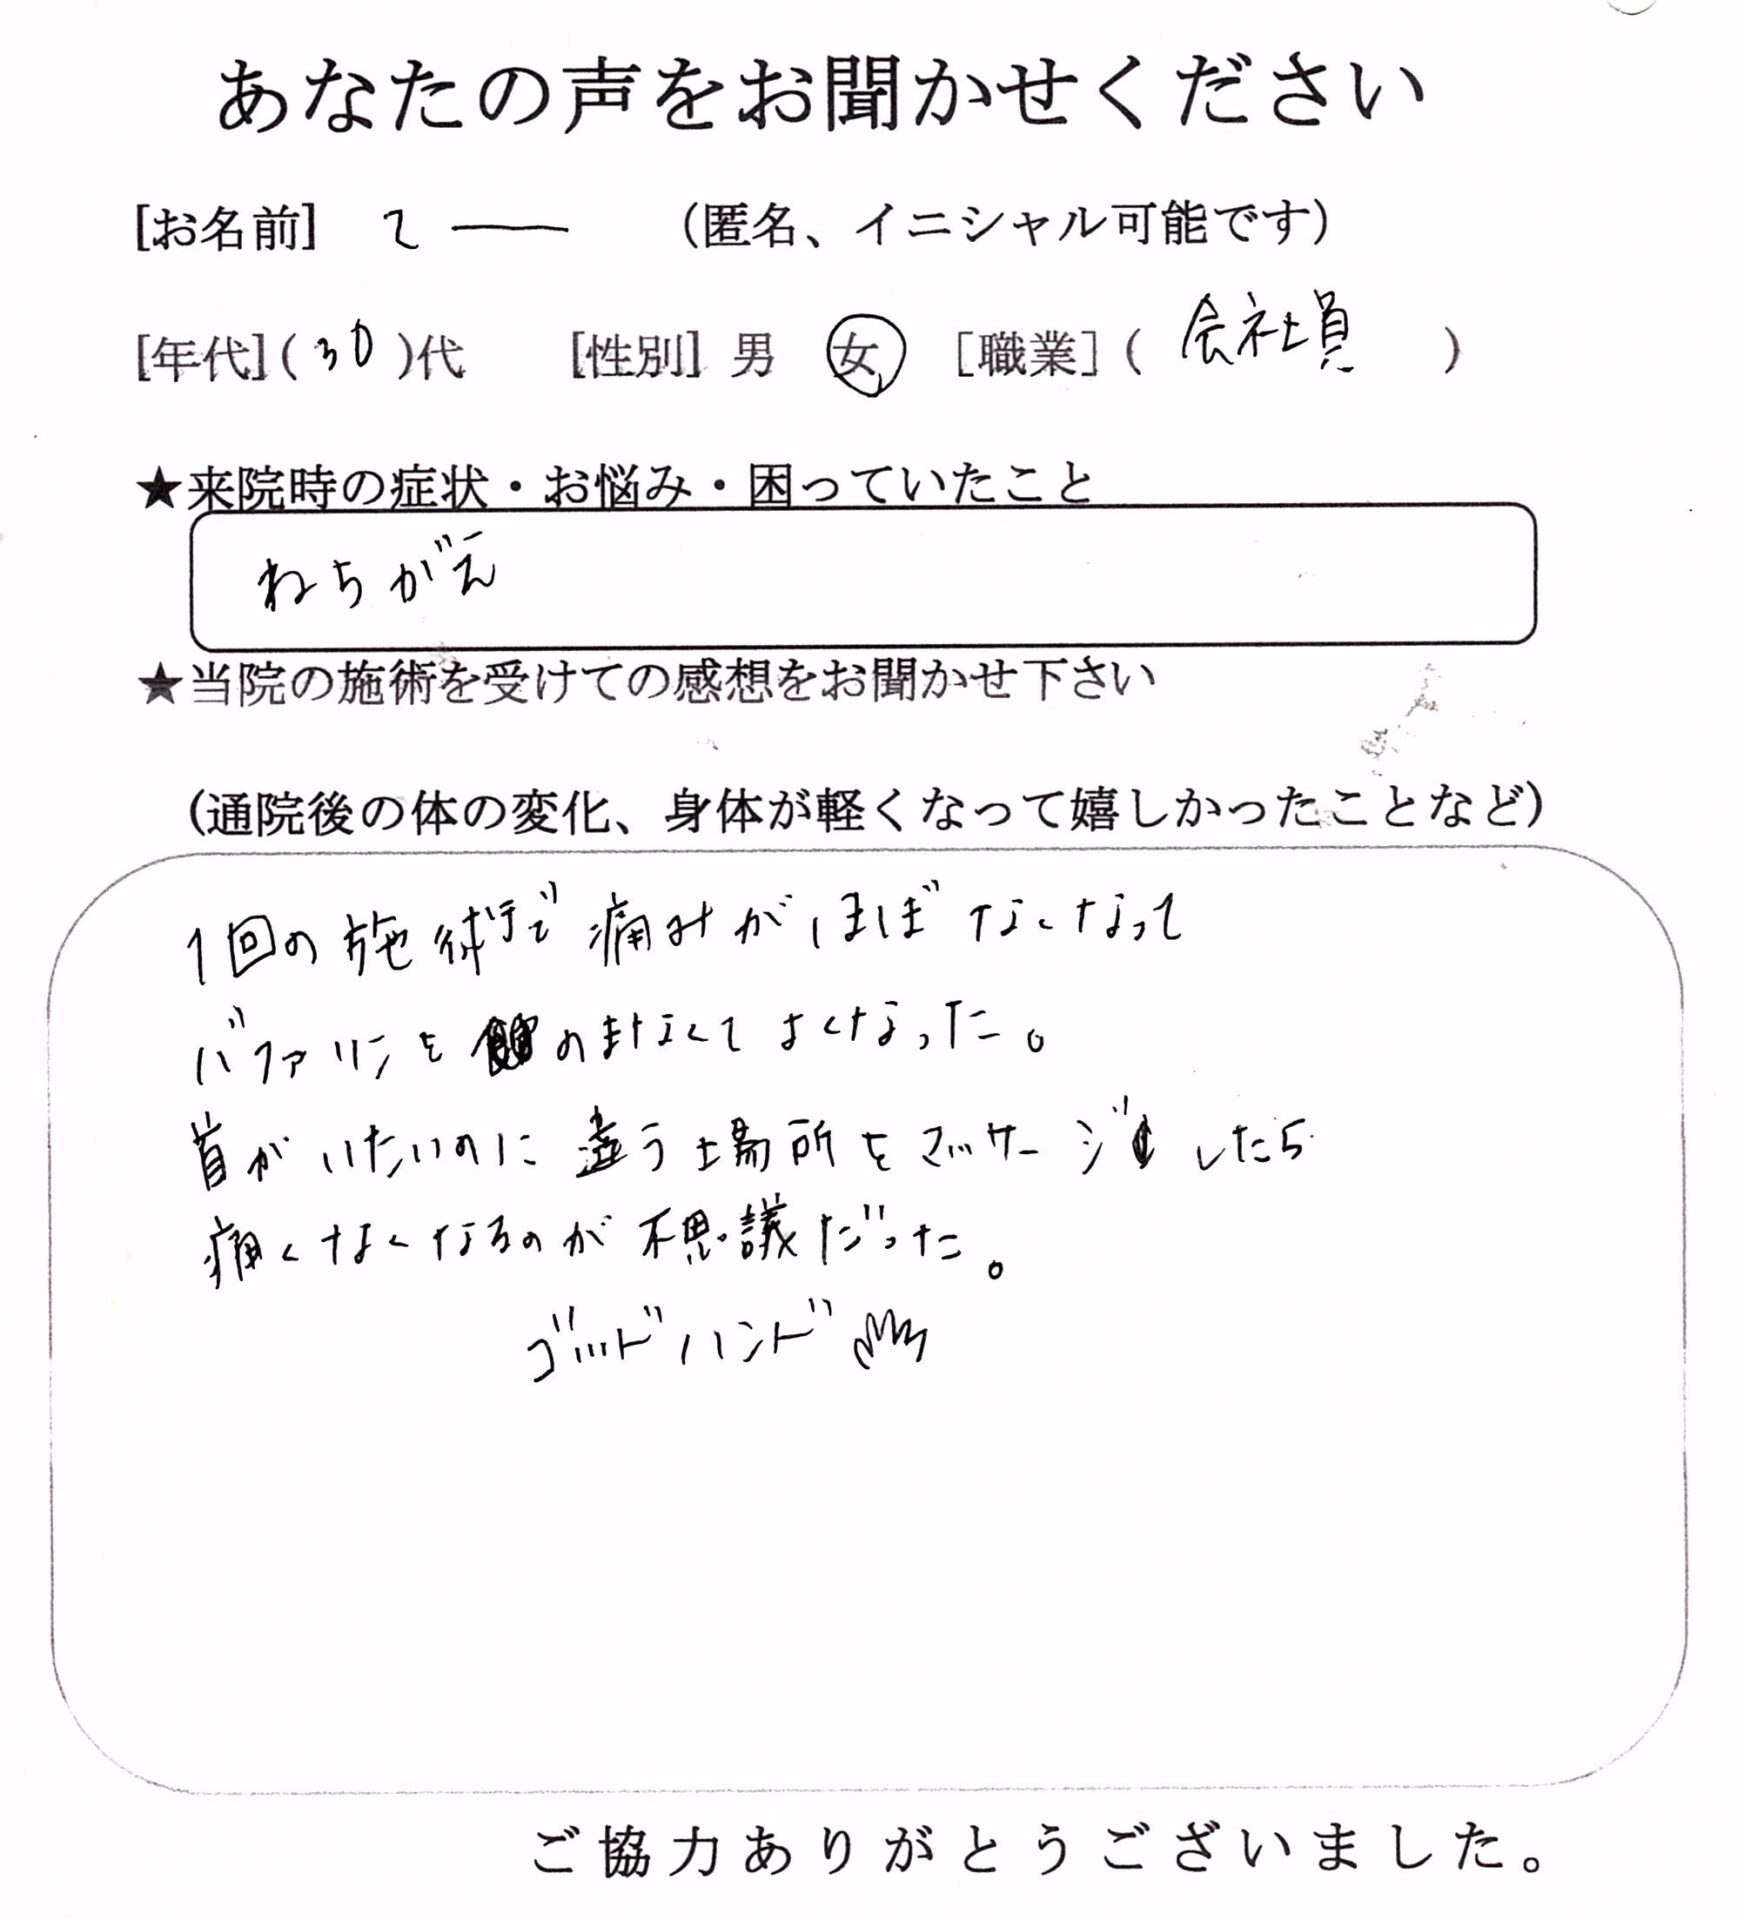 あなたの声をお聞かせください
[お名前] て ― (匿名、イニシャル可能です)
[年代](30)代 [性別] 男 女 [職業] ( 会社員 )
★来院時の症状・お悩み・困っていたこと
ねちがえ
★当院の施術を受けての感想をお聞かせ下さい
(通院後の体の変化、身体が軽くなって嬉しかったことなど)
1回の施術で痛みがほぼなくなって
バファリンをのまなくてよくなった。
首がいたいのに違う場所をマッサージしたら
痛くなくなるのが不思議だった。
ゴッドハンド
ご協力ありがとうございました。